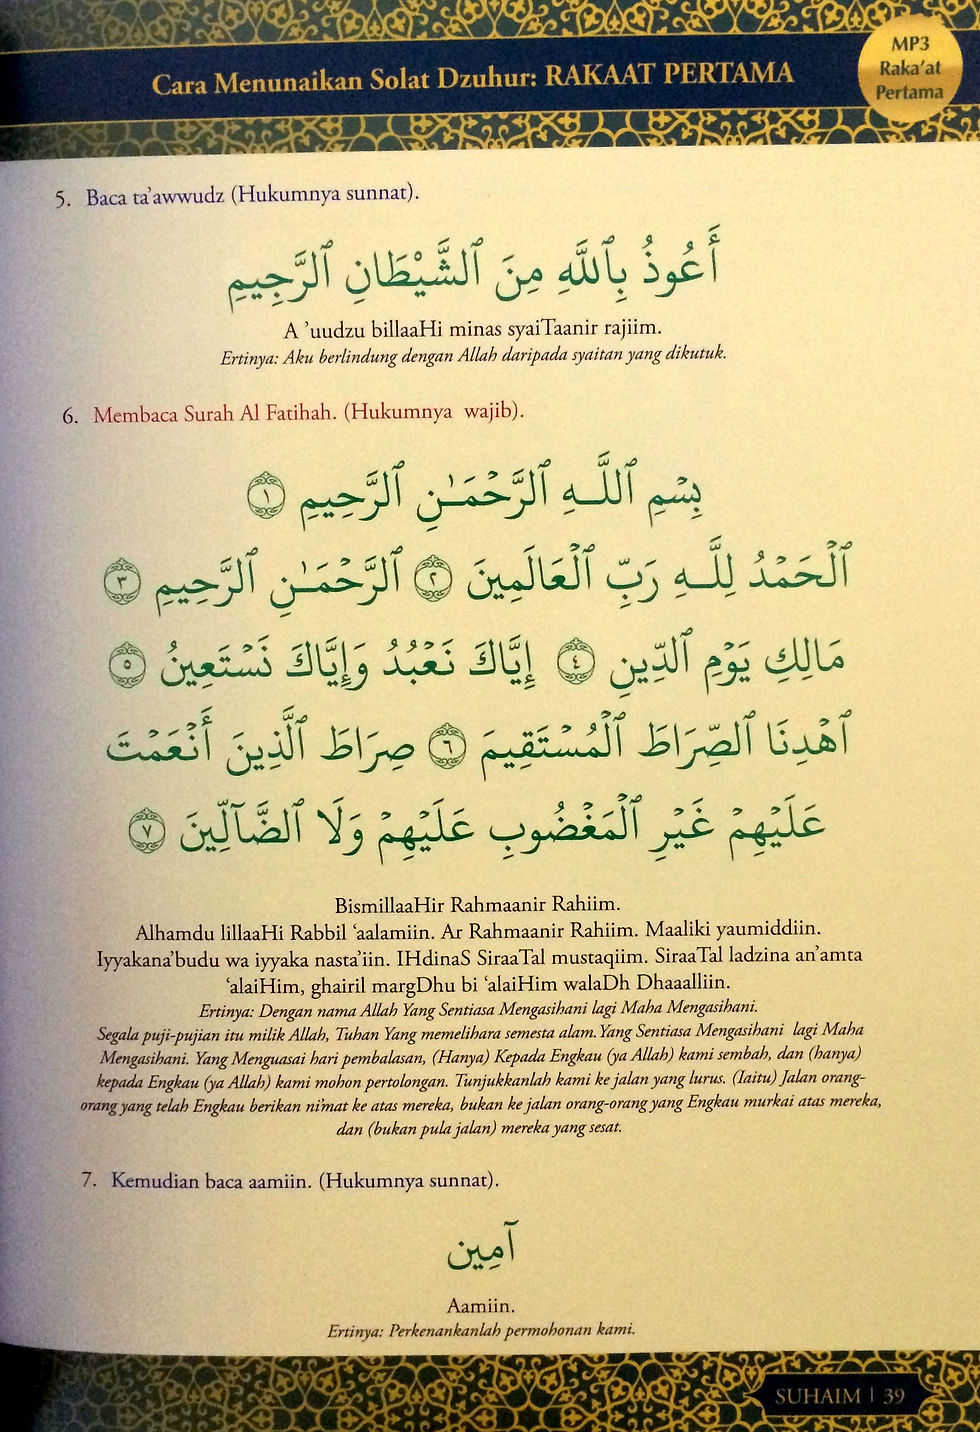 Cara Menunaikan Solat Dzuhur: RAKAAT PERTAMA
MP3
Raka'at
Pertama
5. Baca ta'awwudz (Hukumnya sunnat).
أَعُوذُ بِٱللَّهِ مِنَ ٱلشَّيْطَانِ ٱلرَّجِيمِ
A 'uudzu billaaHi minas syaiTaanir rajiim.
Ertinya: Aku berlindung dengan Allah daripada syaitan yang dikutuk.
6. Membaca Surah Al Fatihah. (Hukumnya wajib).
بِسْمِ ٱللَّـهِ ٱلرَّحْمَـٰنِ ٱلرَّحِيمِ ١
ٱلْحَمْدُ لِلَّـهِ رَبِّ ٱلْعَالَمِينَ ٢ ٱلرَّحْمَـٰنِ ٱلرَّحِيمِ ٣
مَالِكِ يَوْمِ ٱلدِّينِ ٤ إِيَّاكَ نَعْبُدُ وَإِيَّاكَ نَسْتَعِينُ ٥
ٱهْدِنَا ٱلصِّرَاطَ ٱلْمُسْتَقِيمَ ٦ صِرَاطَ ٱلَّذِينَ أَنْعَمْتَ
عَلَيْهِمْ غَيْرِ ٱلْمَغْضُوبِ عَلَيْهِمْ وَلَا ٱلضَّآلِّينَ ٧
BismillaaHir Rahmaanir Rahiim.
Alhamdu lillaaHi Rabbil 'aalamiin. Ar Rahmaanir Rahiim. Maaliki yaumiddiin.
Iyyakana'budu wa iyyaka nasta'iin. IHdinaS SiraaTal mustaqiim. SiraaTal ladzina an'amta
'alaiHim, ghairil margDhu bi 'alaiHim walaDh Dhaaalliin.
Ertinya: Dengan nama Allah Yang Sentiasa Mengasihani lagi Maha Mengasihani.
Segala puji-pujian itu milik Allah, Tuhan Yang memelihara semesta alam. Yang Sentiasa Mengasihani lagi Maha
Mengasihani. Yang Menguasai hari pembalasan, (Hanya) Kepada Engkau (ya Allah) kami sembah, dan (hanya)
kepada Engkau (ya Allah) kami mohon pertolongan. Tunjukkanlah kami ke jalan yang lurus. (Iaitu) Jalan orang-
orang yang telah Engkau berikan ni'mat ke atas mereka, bukan ke jalan orang-orang yang Engkau murkai atas mereka,
dan (bukan pula jalan) mereka yang sesat.
7. Kemudian baca aamiin. (Hukumnya sunnat).
آمِين
Aamiin.
Ertinya: Perkenankanlah permohonan kami.
SUHAIM | 39